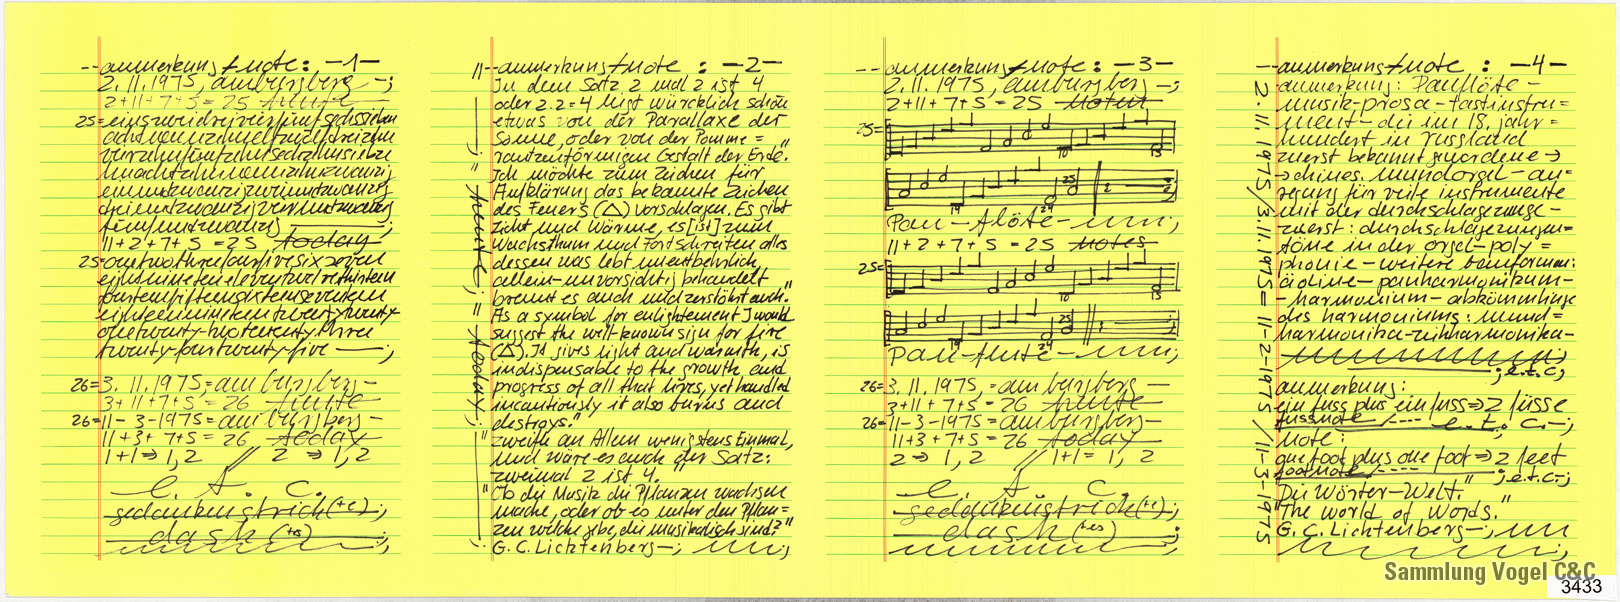 -- anmerkung+note: -1-
2.11.1975, am burgberg -;
2+11+7+5=25 heute
25=einszweidreivierfünfsechssieben
achtneunzehnelfzwölfdreizehn
vierzehnfünfzehnsechzehnsiebzehn
achtzehnneunzehnzwanzig
einundzwanzigzweiundzwanzig
dreiundzwanzigvierundzwanzig
fünfundzwanzig
11+2+7+5=25 today
25=onetwothreefourfivesixseven
eightnineteneleventwelvethirteen
fourteenfifteensixteenseventeen
eighteennineteentwentytwenty-
onetwenty-twotwenty-three
twenty-fourtwenty-five —;
26=3.11.1975=am burgberg-
3+11+7+5=26 heute
26=11-3-1975=am burgberg-
11+3+7+5=26 today
1+1⇒1,2 // 2⇒1,2
e. t. c.
gedankenstrich(+e);
dash(+es) ;
-anmerkung+note: -2-
In dem Satz 2 mal 2 ist 4
oder 2.2=4 liegt würcklich schon
etwas von der Parallaxe der
Sonne, oder von der Pomme=
rantzenförmigen Gestalt der Erde."
Ich möchte zum Zeichen für
Aufklärung das bekannte Zeichen
des Feuers (△) vorschlagen. Es gibt
Licht und Wärme, es [ist] zum
Wachsthum und Fortschreiten alles
dessen was lebt unentbehrlich,
allein-unvorsichtig behandelt
brennt es auch und zerstöhrt auch."
As a symbol for enlightement I would
suggest the well-known sign for fire
(△). It gives light and warmth, is
indispensable to the growth and
progress of all that lives, yet handled
incautiously it also burns and
destroys."
"zweifle an Allem wenigstens Einmal,
und wäre es auch der Satz:
zweimal 2 ist 4."
"Ob die Musik die Pflanzen wachsen
mache, oder ob es unter den Pflan=
zen welche gebe, die musikalisch sind?"
G. C. Lichtenberg-;
—; = heute; = today; —;
-- anmerkung+note: -3-
2.11.1975, am burgberg -;
2+11+7+5=25 Noten
25=
10 13
19 24 25 2
Pan-flöte-
11+2+7+5=25 Notes
25=
10 13
19 24 25 1
Pan-flute-
26=3.11.1975,=am burgberg-
3+11+7+5=26 heute
26=11-3-1975=am burgberg-
11+3+7+5=26 today
2⇒1,2 // 1+1=1,2
e. t. c.
gedankenstrich(+e);
dash(+es) ;
anmerkung+note: -4-
anmerkung: Panflöte-
musik-prosa-tastinstru=
ment-die im 18. jahr=
hundert in russland
zuerst bekannt gewordene→
→chines. mundorgel-an=
regung für viele instrumente
mit der durchschlagezunge-
zuerst: durchschlagezungen=
töne in der orgel-poly=
phonie-weitere bauformen:
äoline-panharmonikum-
-harmonium-abkömmlinge
des harmoniums: mund=
harmonika-ziehharmonika-
; e.t.c;
anmerkung:
ein fuss plus ein fuss⇒2 füsse
fussnote/---- e.t.c.-;
note:
one foot plus one foot⇒2 feet
footnote/---- ; e.t.c-;
"Die Wörter-Welt."
"The World of Words."
G. C. Lichtenberg-;
2.11.1975/3.11.1975=11-2-1975//11-3-1975
Sammlung Vogel C&C
3433